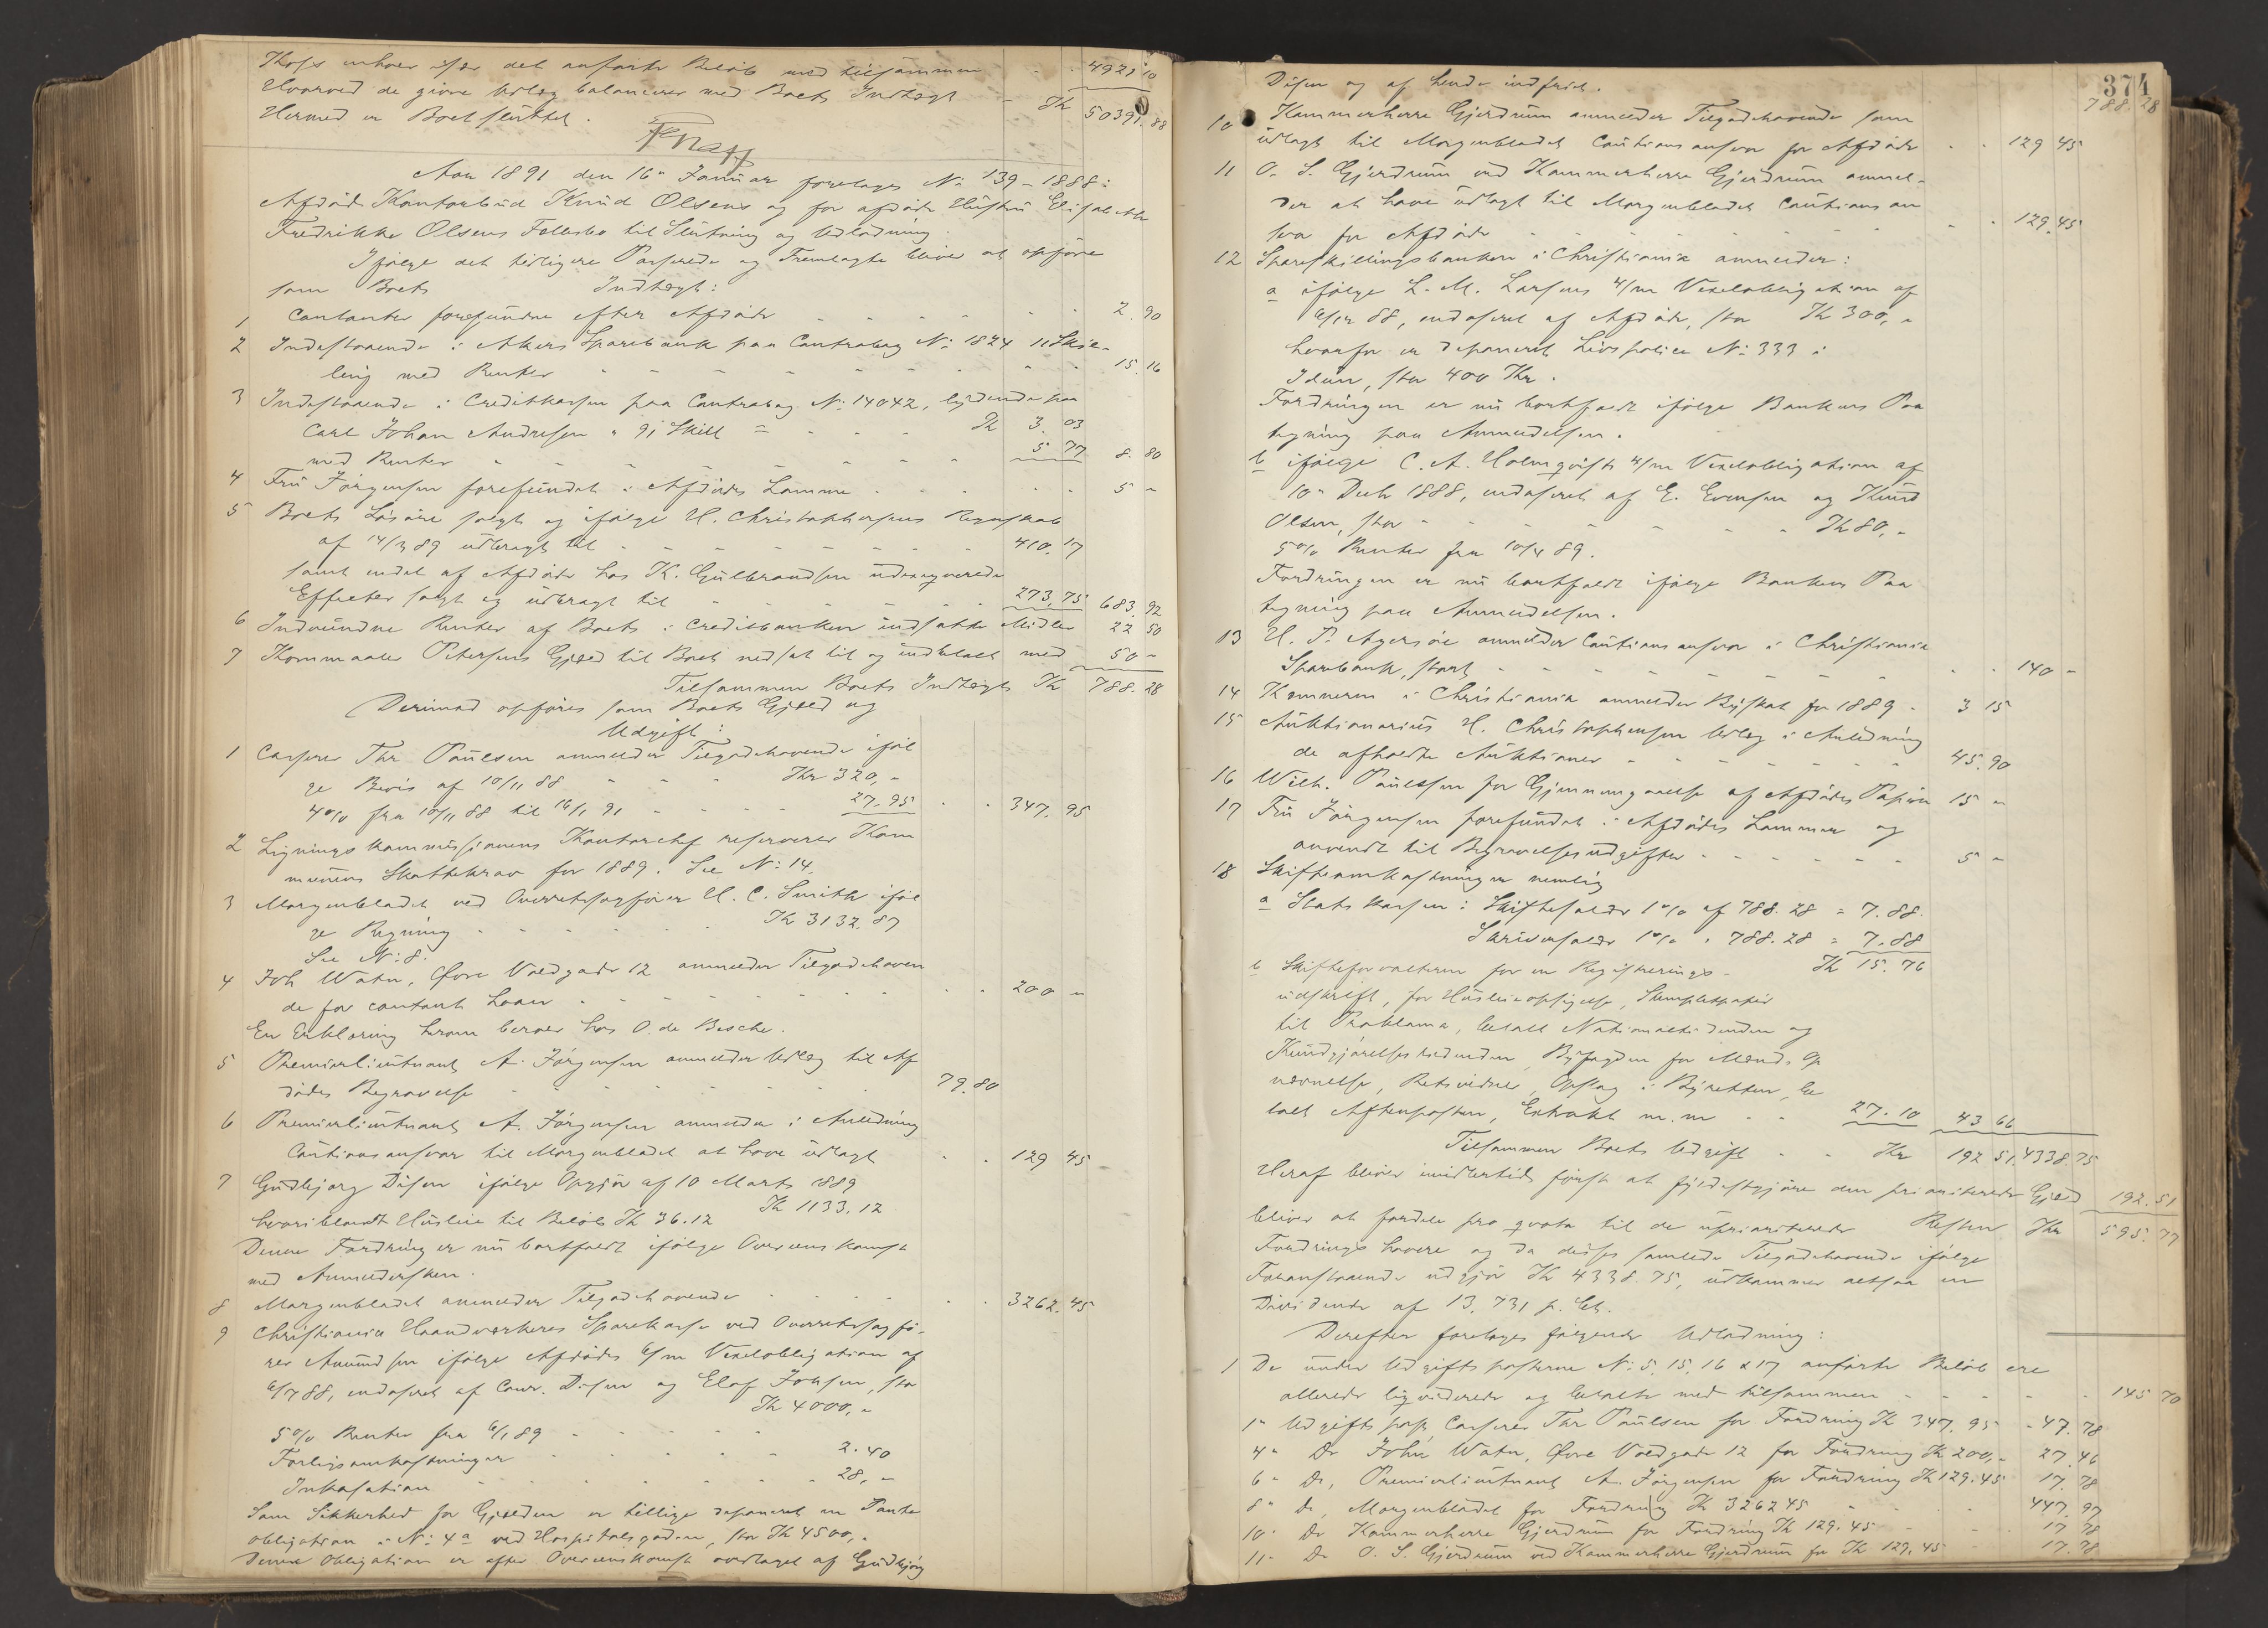 det anførte Beløb med tilsammen 4921 10
Hvorved de givne Udlæg balancerer med Boets Indtægt - Kr 50391.88
Hermed er Boet sluttet.
Aar 1891 den 16de Januar foretages No 139 - 1888:
Afdøde Kontorbud Knud Olsens og før afdøde Hustru Elisabeth
Fredrikke Olsens Fællesbo til Slutning og Udlodning.
Ifølge det tidligere Passerede og Fremlagte bliver at opføre
som Boets Indtægt:
1 Contanter forefundne efter Afdøde 2.90
2 Indestaaende i Akers Sparebank paa Contrabog No 1824 11 Skil-
ling med Renter 15.16
3 Indestaaende i Creditkassen paa Contrabog No 14042, lydende paa
Carl Johan Andresen " 91 Skill = Kr 3.03
med Renter 5 77 8.80
4 Fru Jørgensen forefundet i Afdødes Lomme 5 -
5 Boets Løsøre solgt og ifølge H. Christophersens Regnskab
af 14/3 89 udbragt til 410.17
samt endel af Afdøde hos K. Gulbrandsen
Effecter solgt og udbragt til 273,75 683,92
6 Indvundne Renter af Boets i Creditbanken indsatte Midler 22 50
7 Petersens Gjæld til Boet nedsat til og indbetalt med 50 -
Tilsammen Boets Indtægt Kr 788.28
Derimod opføres som Boets Gjæld og
Udgift:
1 Casserer Thr Paulsen anmelder Tilgodehavende iføl
ge Bevis af 10/11 88 Kr 320,-
4% fra 10/11 88 til 16/1 91 27.95 347.95
2 Ligningskommissionens Kontorchef reserverer Kom
munens Skattekrav for 1889. See No 14.
3 Morgenbladet ved Overretssagfører H. C. Smith iføl
ge Regning Kr 3132.87
See No 8.
4 Joh Water, Øvre Voldgade 12 anmelder Tilgodehaven
de for contant Laan 200 -
En Erklæring herom beroer hos O. de Besche.
5 Premierlieutnant A. Jørgensen anmelder Udlæg til Af
dødes Begravelse 79.80
6 Premierlieutnant A. Jørgensen anmelder i Anledning
Cautionsansvar til Morgenbladet at have udlagt 129 45
7 Gudbjørg Disen ifølge Opgjør af 10 Marts 1889
Kr 1133.12
hvoriblandt Husleie til Beløb Kr 36.12
Denne Fordring er nu bortfaldt ifølge Overenskomst
med Anmeldersken.
8 Morgenbladet anmelder Tilgodehavende 3262.45
9 Christiania Haandværkeres Sparekasse ved Overretssagfø-
rer Amundsen ifølge Afdødes 6/m Vexelobligation af
6/7 88, endosseret af Conr. Disen og Elof Johsen, stor
Kr 4000,-
5% Renter fra 6/1 89
Forligsomkostninger 2.40
Inkasation 28,-
Som Sikkerhed for Gjælden er tillige deponeret en Pante
obligation i No 4a ved Hospitalsgaden, stor Kr 4500,-
Denne Obligation er efter Overenskomst overtaget af Gudbjørg
374
Disen og af hende indfriet. 788.28
10 Kammerherre Gjerdrum anmelder Tilgodehavende som
udlagt til Morgenbladet Cautionsansvar for Afdøde 129 45
11 O. S. Gjerdrum ved Kammerherre Gjerdrum anmel-
der at have udlagt til Morgenbladet Cautionsan
svar for Afdøde 129.45
12 Spareskillingsbanken i Christiania anmelder:
a ifølge L. M. Larsens 4/m Vexelobligation af
6/12 88, endosseret af Afdøde, stor Kr 300,-
hvorfor er deponeret Livspolice No 333 i
Idun, stor 400 Kr.
Fordringen er nu bortfaldt ifølge Bankens Paa
tegning paa Anmeldelsen.
b ifølge C. A. Holmqvists 4/m Vexelobligation af
10de Decbr 1888, endosseret af E. Evensen og Knud
Olsen, stor Kr 80,-
5% Renter fra 10/4 89.
Fordringen er nu bortfaldt ifølge Bankens Paa
tegning paa Anmeldelsen.
13 H. P. Agersøe anmelder Cautionsansvar i Christiania
Sparebank, stort 140 -
14 Kemneren i Christiania anmelder Byskat for 1889 - 3 15
15 Auktionarius H. Christophersen Udlæg i Anledning
de afholdte Auktioner 45.90
16 Wilh. Paulssen for Gjennemgaaelse af Afdødes Papirer 15 -
17 Fru Jørgensen forefundet i Afdødes Lommer og
anvendt til Begravelsesudgifter 5 -
18 Skifteomkostninger nemlig
a Statskassen: Skiftesalær 1% af 788.28 = 7.88.
Skriversalær 1% " 788.28 = 7.88
Kr 15.76
b Skifteforvalteren for en Registrerings-
udskrift, for Husleieopsigelse, Stempletpapir
til Proklama, betalt Nationaltidenden og
Kundgjørelsestidenden, Byfogden for Mænds Op
nævnelse, Retsvidner, Opslag i Byretten, be
talt Aftenposten, Extrakt m.m 27.10 43 66
Tilsammen Boets Udgift Kr 192 51. 4338.75
Heraf bliver imidlertid først at fyldestgjøre den prioriterede Gjæld 192.51
Resten Kr 595.77
bliver at fordele pro qvota til de uprioriterede
Fordringshavere og da disses samlede Tilgodehavende ifølge
Foranstaaende udgjør Kr 4338.75, udkommer altsaa en
Dividende af 13,731 p. Ct.
Derefter foretages følgende Udlodning:
1 De under Udgiftsposterne No 5, 15, 16 & 17 anførte Beløb ere
allerede liqviderede og betalte med tilsammen 145 70
1" Udgiftspost, Casserer Thr Paulsen for Fordring Kr 347.95 - 47.78
4" Do Johs Water, Øvre Voldgade 12 for Fordring Kr 200,- 27.46
6" Do, Premierlieutnant A. Jørgensen for Fordring Kr 129.45 17.78
8" Do, Morgenbladet for Fordring Kr 3262 45 447.97
10" Do Kammerherre Gjerdrum for Fordring Kr 129.45 17.78
11" Do O. S. Gjerdrum ved Kammerherre Gjerdrum for Kr 129.45 17.78